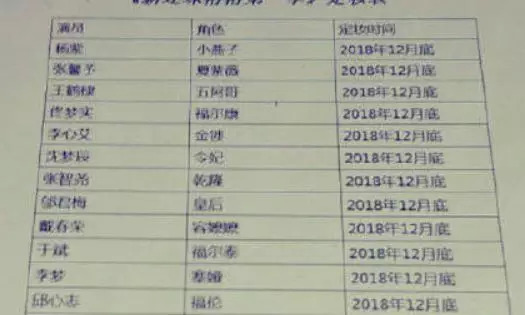 演员 角色 定妆时间
杨紫 小燕子 2018年12月底
张馨予 夏紫薇 2018年12月底
王鹤棣 五阿哥 2018年12月底
佟梦实 福尔康 2018年12月底
李心艾 金锁 2018年12月底
沈梦辰 令妃 2018年12月底
张智尧 乾隆 2018年12月底
邬君梅 皇后 2018年12月底
戴春荣 容嬷嬷 2018年12月底
于斌 福尔泰 2018年12月底
李梦 塞娅 2018年12月底
邱心志 福伦 2018年12月底